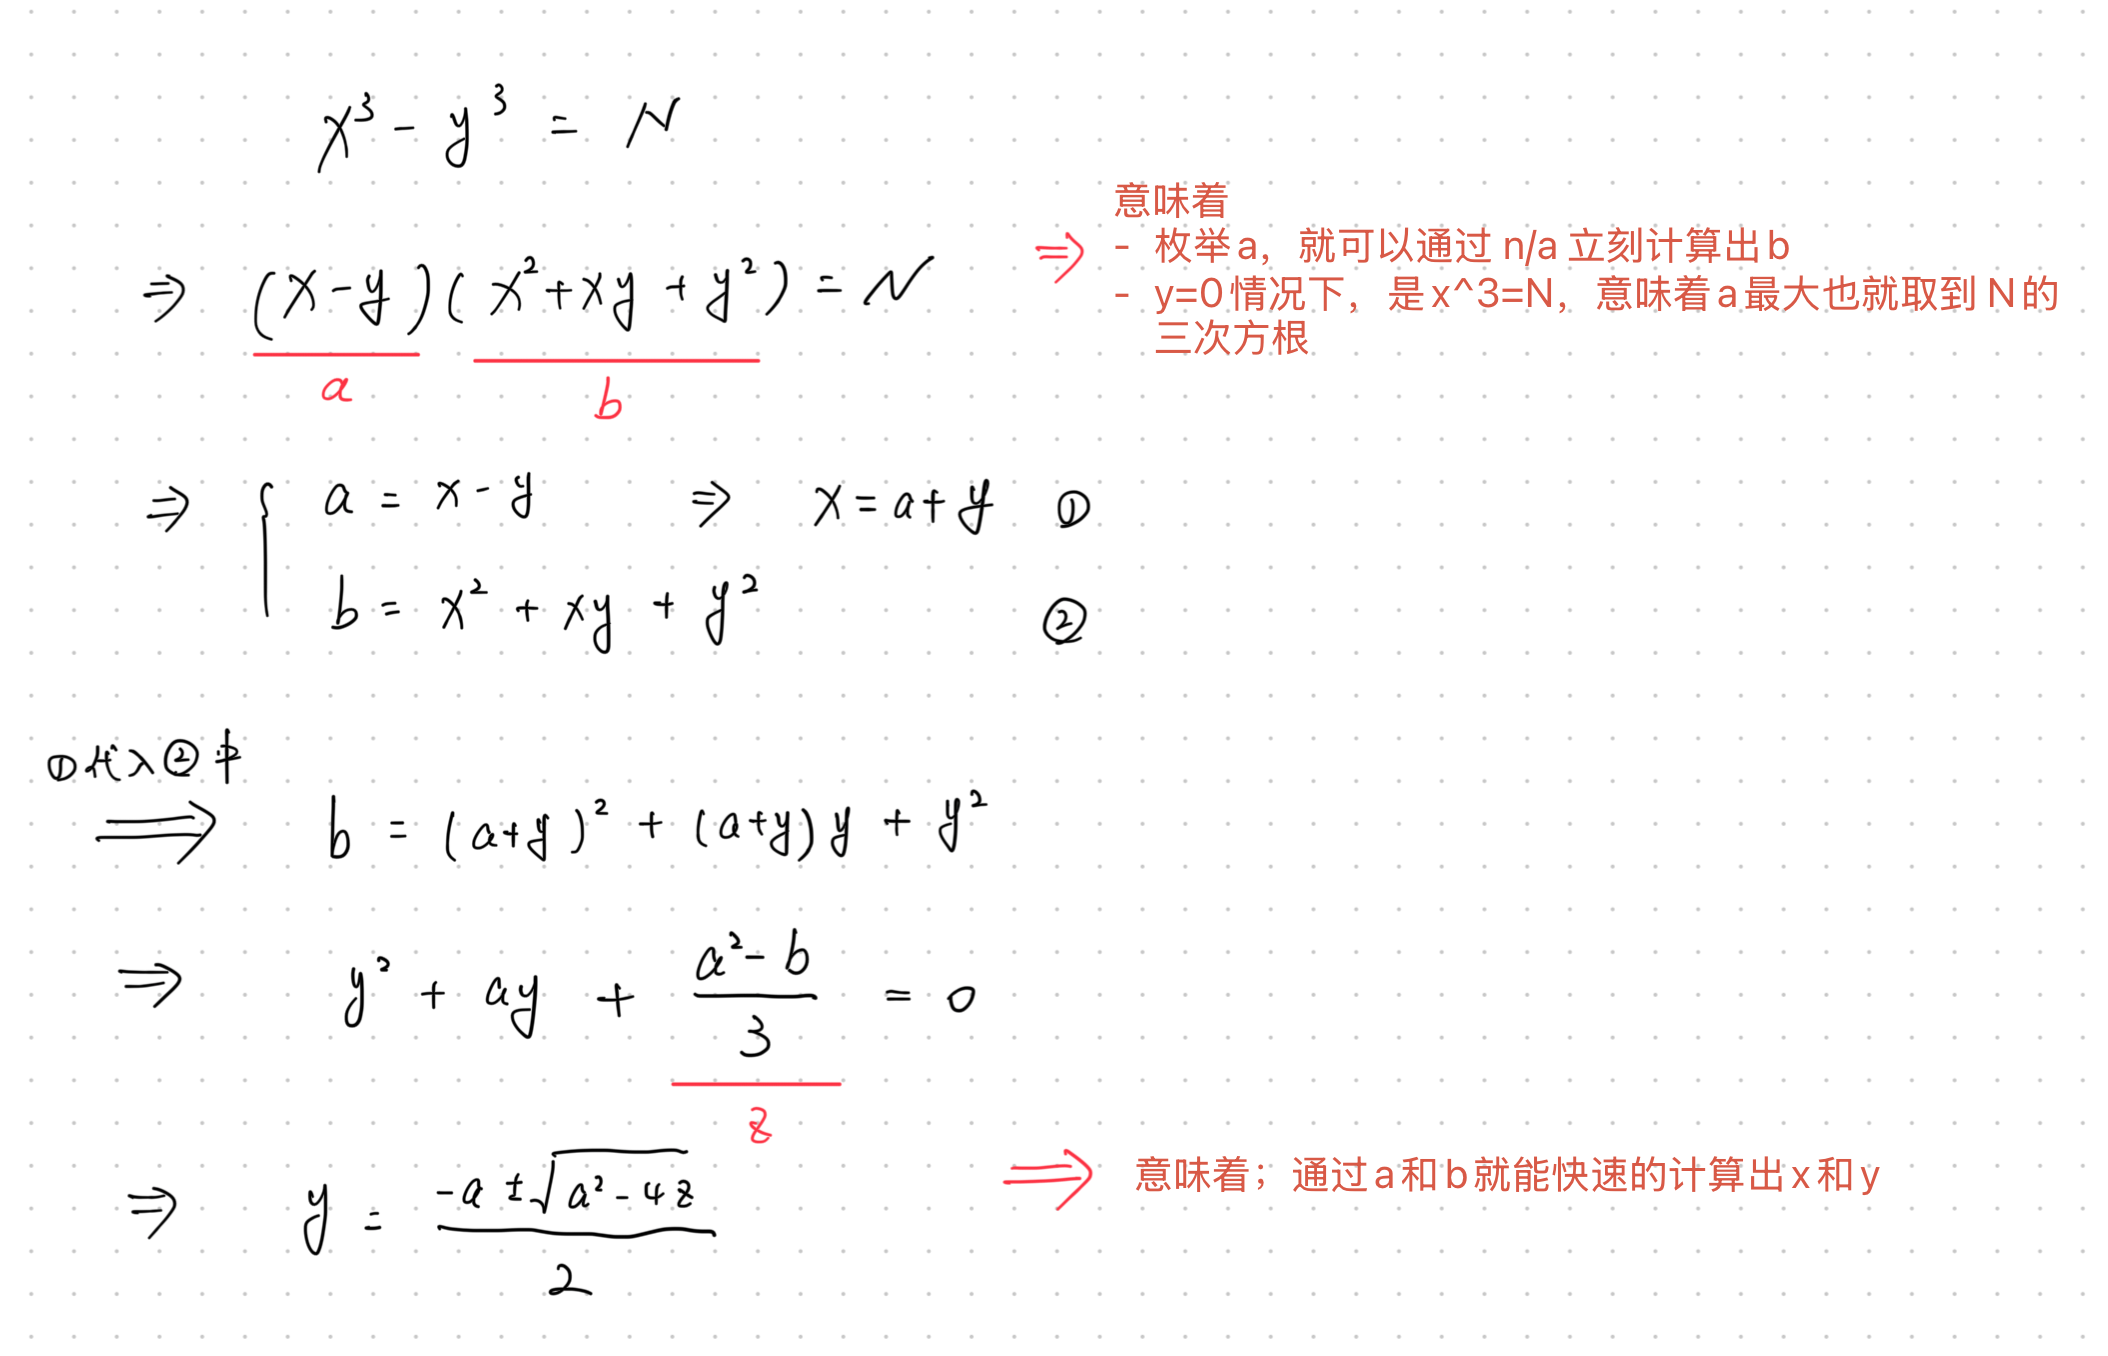 x³ - y³ = N
⇒ (x-y)(x²+xy+y²) = N
a
b
⇒ 意味着
- 枚举a，就可以通过 n/a 立刻计算出b
- y=0情况下，是x^3=N，意味着a最大也就取到 N的
三次方根
⇒ { a = x-y ⇒ x = a+y ①
b = x² + xy + y² ②
①代入②中
⇒ b = (a+y)² + (a+y)y + y²
⇒ y² + ay + (a²-b)/3 = 0
z
⇒ y = (-a ± √(a²-4z))/2
⇒ 意味着；通过a和b就能快速的计算出x和y